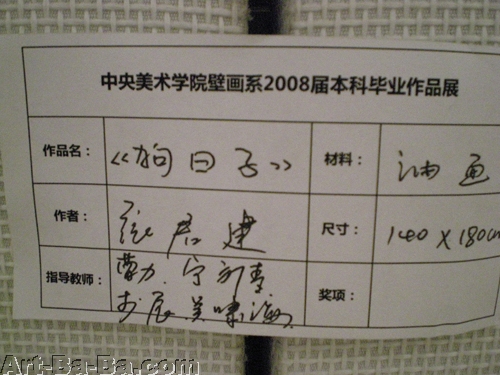 中央美术学院壁画系2008届本科毕业作品展
作品名： 《狗日子》 材料： 油画
作者： 张君建 尺寸： 140×180cm
指导教师： 曹力 奖项：
吴啸海
Art-Ba-Ba.com